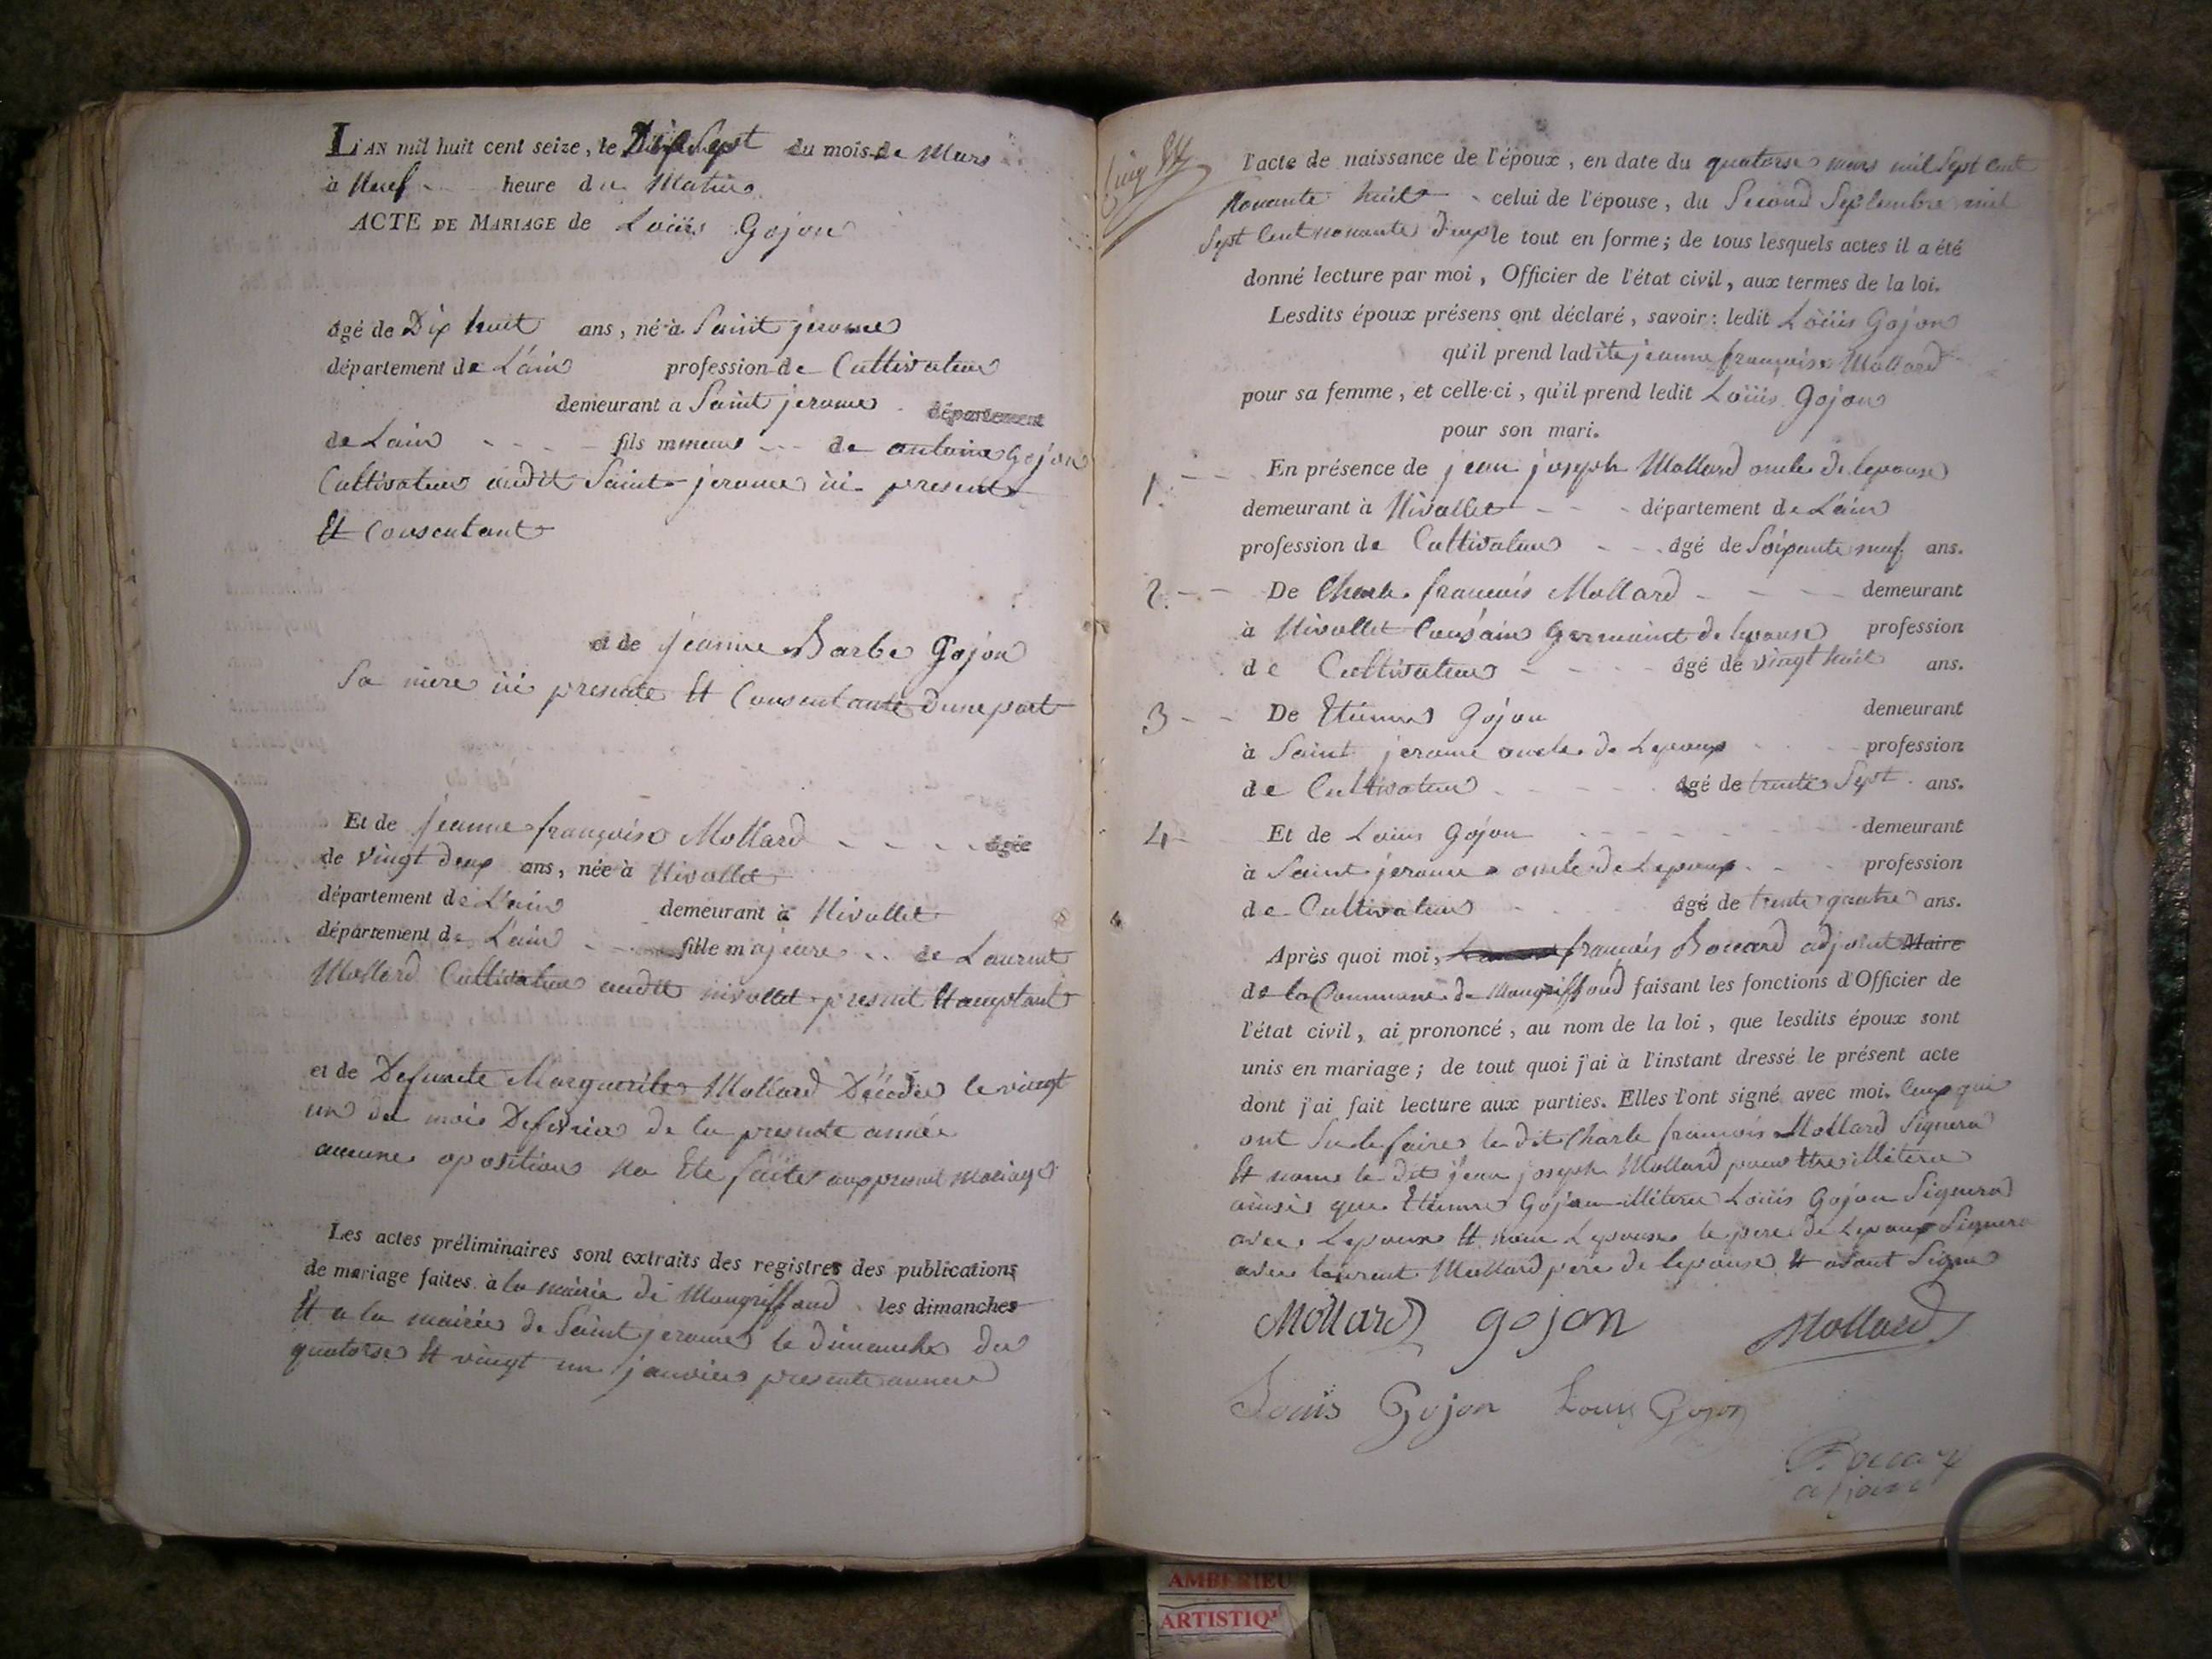 L'AN mil huit cent seize, le Dix Sept du mois de Mars
à Neuf heure du Matin
ACTE DE MARIAGE de Loüis Gojon
âgé de Dix huit ans, né à Saint jerome
département de L'ain profession de Cultivateur
demeurant à Saint jerome département
de Lain fils mineur de antoine Gojon
Cultivateur audit Saint jerome ici present
Et Consentant
et de jeanne Barbe Gojon
Sa mere ici presente Et Consentante dune part
Et de jeanne françoise Mollard âgée
de vingt deux ans, née à Nivollet
département de L'ain demeurant à Nivollet
département de L'ain fille majeure de Laurent
Mollard Cultivateur audit nivollet present Et
et de Defunte Marguerite Mollard Décédée le vingt
un du mois De fevrier de la presente année
aucune oposition na Ete faite au present mariage
Les actes préliminaires sont extraits des registres des publications
de mariage faites à la mairie de Mongriffond les dimanches
Et a la mairie de Saint jerome le dimanche du
quatorse Et vingt un janvier presente annee
l'acte de naissance de l'époux, en date du quatorse mars mil Sept Cent
Nonante huit celui de l'épouse, du Second Septembre mil
Sept Cent nonante le tout en forme; de tous lesquels actes il a été
donné lecture par moi, Officier de l'état civil, aux termes de la loi.
Lesdits époux présens ont déclaré, savoir: ledit Loüis Gojon
qu'il prend ladite jeanne françoise Mollard
pour sa femme, et celle-ci, qu'il prend ledit Loüis Gojon
pour son mari.
1. En présence de jean joseph Mollard oncle de lepouse
demeurant à Nivollet département de L'ain
profession de Cultivateur âgé de Soixante neuf ans.
2. De Charle françois Mollard demeurant
à Nivollet Cousain Germaint de lepouse profession
de Cultivateur âgé de vingt huit ans.
3 De Etienne Gojon demeurant
à Saint jerome oncle de Lepoux profession
de Cultivateur âgé de trente Sept ans.
4 Et de Louis Gojon demeurant
à Saint jerome oncle de Lepoux profession
de Cultivateur âgé de trente quatre ans.
Après quoi moi, françois Bouard adjoint Maire
de la Commune de Mongriffond faisant les fonctions d'Officier de
l'état civil, ai prononcé, au nom de la loi, que lesdits époux sont
unis en mariage; de tout quoi j'ai à l'instant dressé le présent acte
dont j'ai fait lecture aux parties. Elles l'ont signé avec moi. Ceux qui
ont Su le faire le dit Charle françois Mollard Signera
Et nom le dit jean joseph Mollard pour Etre illitere
ainsis que Etienne Gojon illitere Loüis Gojon Signera
avec Lepoux Et nom Lepouse le pere de Lepoux Signera
avec laurent Mollard pere de lepouse Et ont Signe
Mollard gojon Mollard
Louis Gojon Louis Gojon
adjoint
AMBERIEU
ARTISTIQ